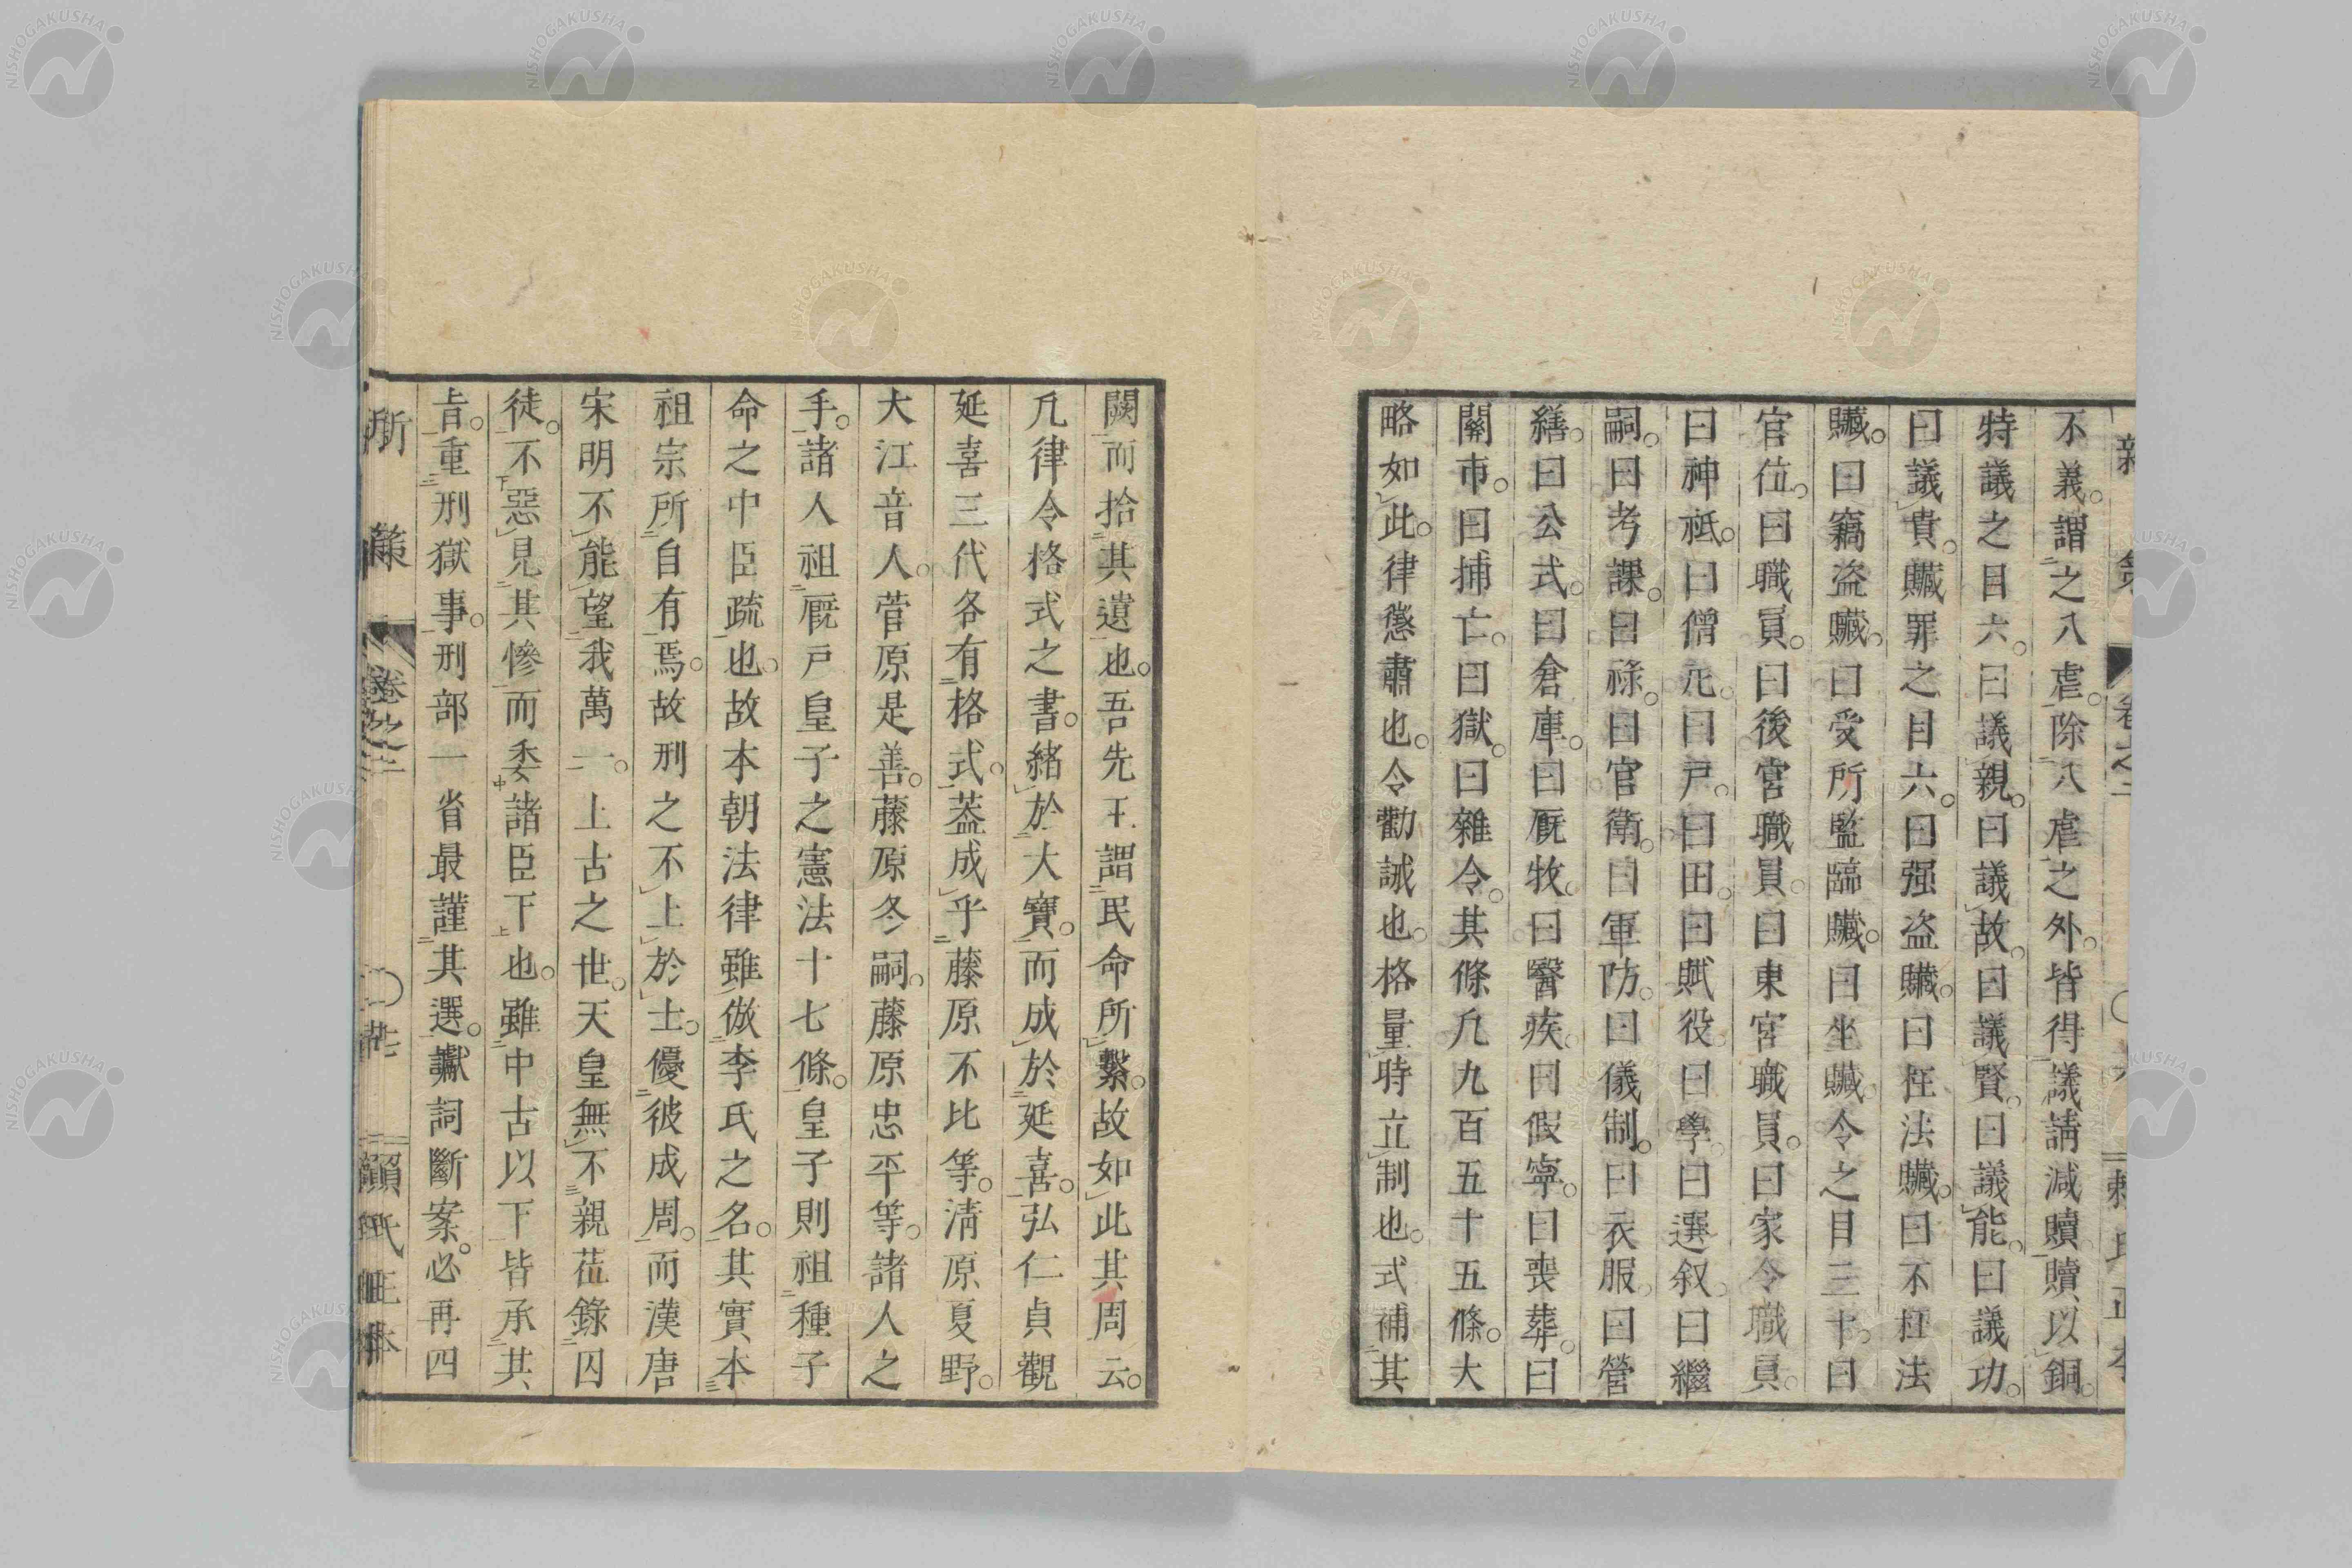 不義。謂之八虐。除八虐之外。皆得議請減贖。贖以銅。
特議之目六。曰議親。曰議故。曰議賢。曰議能。曰議功。
曰議貴。贓罪之目六。曰强盗贓。曰枉法贓。曰不枉法
贓。曰竊盗贓。曰受所監臨贓。曰坐贓。令之目三十。曰
官位。曰職員。曰後宮職員。曰東宮職員。曰家令職員。
曰神祇。曰僧尼。曰戸。曰田。曰賦役。曰學。曰選叙。曰繼
嗣。曰考課。曰祿。曰宮衛。曰軍防。曰儀制。曰衣服。曰營
繕。曰公式。曰倉庫。曰厩牧。曰醫疾。曰假寧。曰喪葬。曰
關市。曰捕亡。曰獄。曰雜令。其條凡九百五十五條。大
略如此。律懲肅也。令勸誡也。格量時立制也。式補其
闕而拾其遺也。吾先王謂民命所繫。故如此其周云。
凡律令格式之書。緒於大寶。而成於延喜。弘仁貞觀
延喜三代各有格式。葢成乎藤原不比等。淸原夏野。
大江音人。菅原是善。藤原冬嗣。藤原忠平等。諸人之
手。諸人祖厩戸皇子之憲法十七條。皇子則祖種子
命之中臣疏也。故本朝法律雖倣李氏之名。其實本
祖宗所自有焉。故刑之不上於士。優彼成周。而漢唐
宋明不能望我萬一。上古之世。天皇無不親莅錄囚
徒。不惡見其慘而委諸臣下也。雖中古以下皆承其
旨。重刑獄事。刑部一省最謹其選。讞詞斷案。必再四
新策 卷之二 賴氏正本